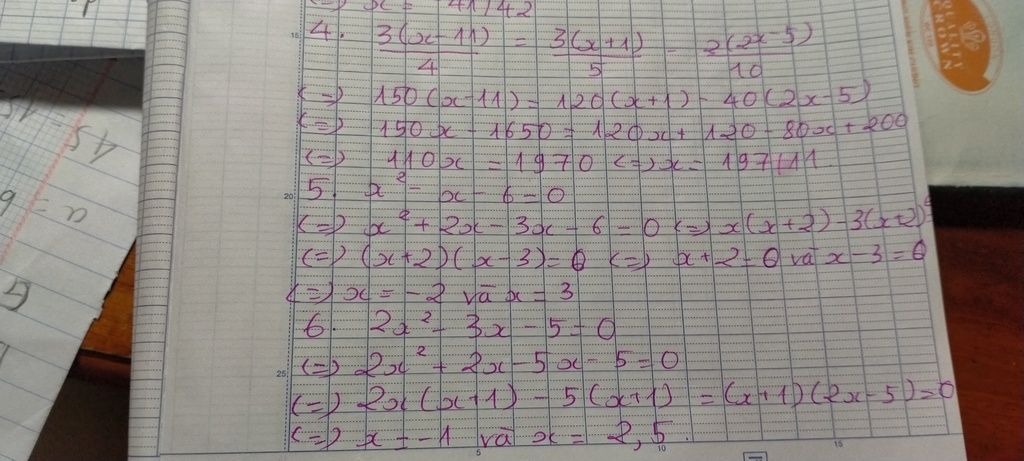 (=) x = -41/42
4. 3(x-11)/4 = 3(x+1)/5 - 2(2x-5)/10
(=) 150(x-11) = 120(x+1) - 40(2x-5)
(=) 150x - 1650 = 120x + 120 - 80x + 200
(=) 110x = 1970 (=) x = 197/11.
5. x² - x - 6 = 0
(=) x² + 2x - 3x - 6 = 0 (=) x(x+2) - 3(x+2)
(=) (x+2)(x-3) = 0 (=) x+2 = 0 và x-3 = 0
(=) x = -2 và x = 3
6. 2x² - 3x - 5 = 0
(=) 2x² + 2x - 5x - 5 = 0
(=) 2x(x+1) - 5(x+1) = (x+1)(2x-5) = 0
(=) x = -1 và x = 2,5.
15
20
25
5
10
15
QUALITY
CROWN
45